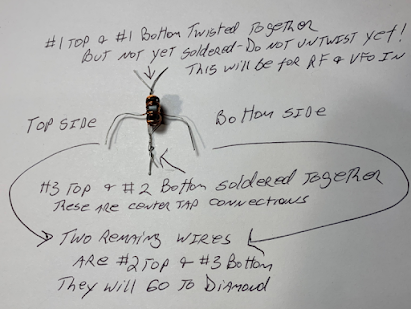 #1 TOP & #1 BOTTOM TWISTED TOGETHER
BUT NOT YET SOLDERED-DO NOT UNTWIST YET!
THIS WILL BE FOR RF & VFO IN
TOP SIDE
BOTTOM SIDE
#3 TOP & #2 BOTTOM SOLDERED TOGETHER
THESE ARE CENTER TAP CONNECTIONS
TWO REMAING WIRES
ARE #2 TOP & #3 BOTTOM
THEY WILL GO TO DIAMOND